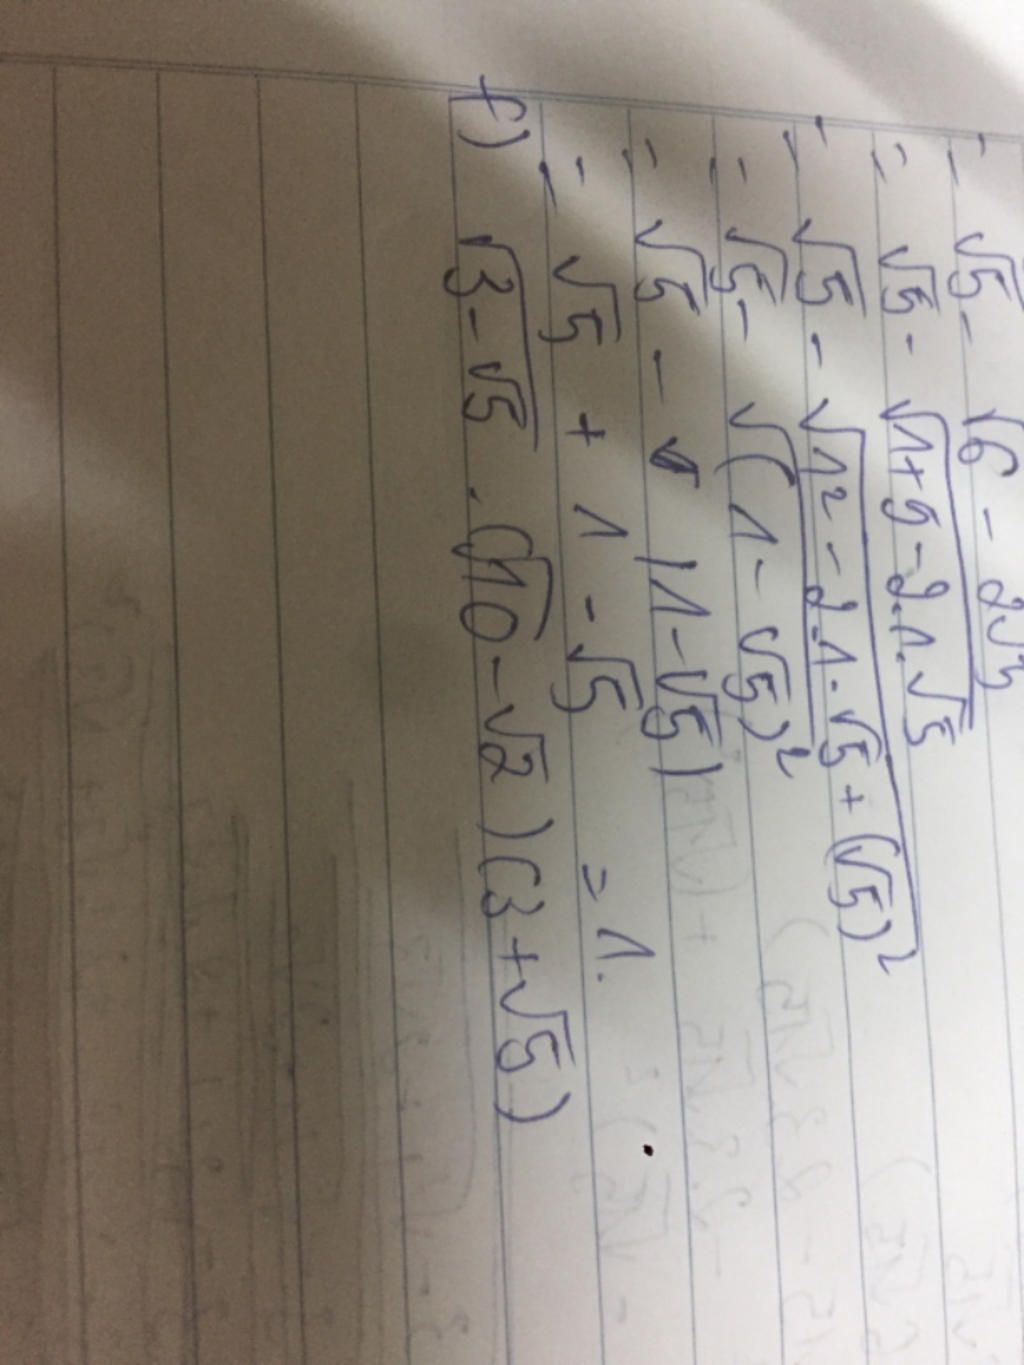 = √5 - √6 - 2√5
= √5 - √1+5-2.1.√5
= √5 - √1² - 2.1.√5 + (√5)²
= √5 - √(1 - √5)²
= √5 - |1-√5|
= √5 + 1 - √5 = 1.
f) √3-√5 . (√10 - √2)(3+√5)